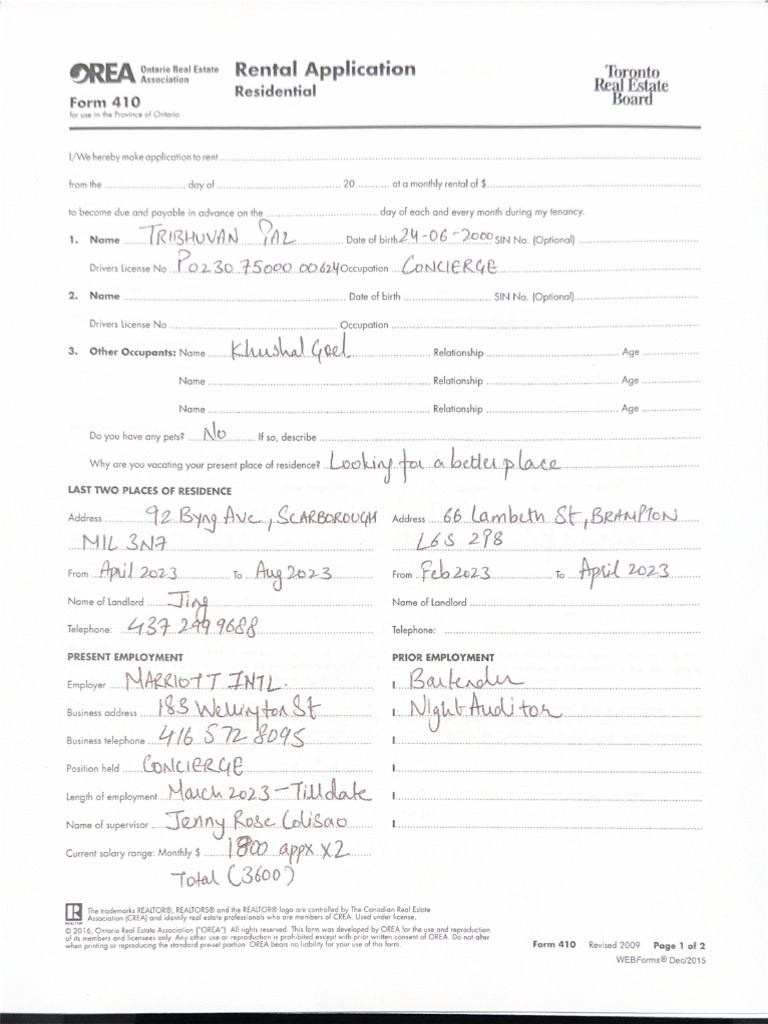 OREA Ontario Real Estate Association
Rental Application
Residential
Toronto Real Estate Board
Form 410
for use in the Province of Ontario
I/We hereby make application to rent
from the day of 20 at a monthly rental of $
to become due and payable in advance on the day of each and every month during my tenancy.
1. Name TRIBHUVAN PAL Date of birth 24-06-2000 SIN No. (Optional)
Drivers License No P0230 75000 00624 Occupation CONCIERGE
2. Name Date of birth SIN No. (Optional)
Drivers License No Occupation
3. Other Occupants: Name Khushal Goel Relationship Age
Name Relationship Age
Name Relationship Age
Do you have any pets? No If so, describe
Why are you vacating your present place of residence? Looking for a better place
LAST TWO PLACES OF RESIDENCE
Address 92 Byng Ave, SCARBOROUGH Address 66 Lambeth St, BRAMPTON
M1L 3N7 L6S 2P8
From April 2023 To Aug 2023 From Feb 2023 To April 2023
Name of Landlord Jing Name of Landlord
Telephone: 437 299 9688 Telephone:
PRESENT EMPLOYMENT PRIOR EMPLOYMENT
Employer MARRIOTT INTL. Bartender
Business address 183 Wellington St Night Auditor
Business telephone 416 572 8095
Position held CONCIERGE
Length of employment March 2023 - Till date
Name of supervisor Jenny Rose Colisao
Current salary range: Monthly $ 1800 appx x2
Total (3600)
REALTOR
The trademarks REALTOR®, REALTORS® and the REALTOR® logo are controlled by The Canadian Real Estate
Association (CREA) and identify real estate professionals who are members of CREA. Used under license.
© 2016, Ontario Real Estate Association ("OREA"). All rights reserved. This form was developed by OREA for the use and reproduction
of its members and licensees only. Any other use or reproduction is prohibited except with prior written consent of OREA. Do not alter
when printing or reproducing the standard pre-set portion. OREA bears no liability for your use of this form.
Form 410 Revised 2009 Page 1 of 2
WEBForms® Dec/2015